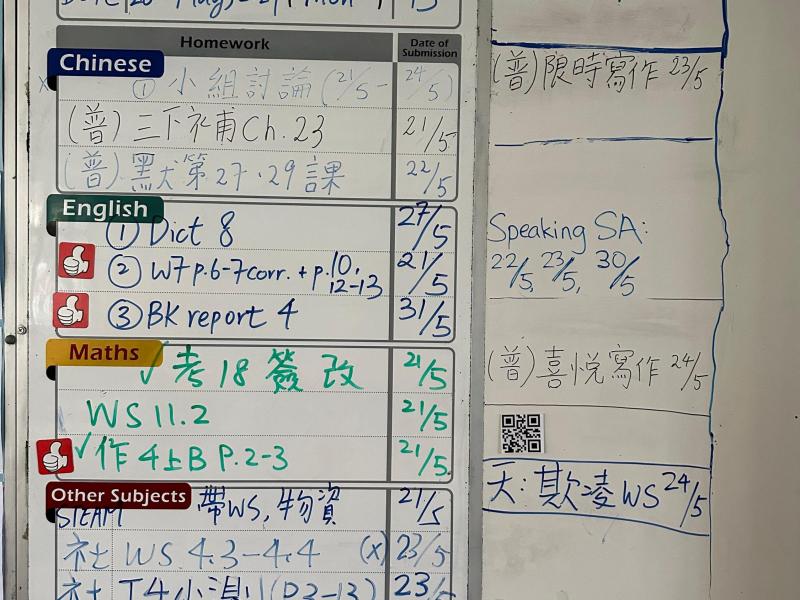 Homework
Date of Submission
Chinese
① 小組討論 (21/5 - 24/5)
(普) 三下补甫 Ch. 23 21/5
(普) 黑犬第27、29課 22/5
English
① Dict 8 27/5
② W7 p.6-7 corr. + p.10, 12-13 21/5
③ BK report 4 31/5
Maths
✓考18簽改 21/5
WS 11.2 21/5
✓作4上B P.2-3 21/5
Other Subjects
STEAM 帶WS, 物資 21/5
社 WS 4.3-4.4 (x) 23/5
(普) 限時寫作 23/5
Speaking SA:
22/5, 23/5, 30/5
(普) 喜悅寫作 24/5
天: 欺凌WS 24/5